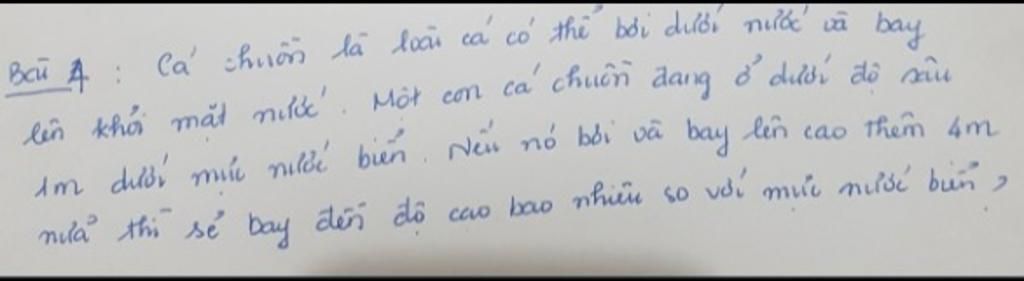 Bài 4 : Cá chuồn là loài cá có thể bơi dưới nước và bay
lên khỏi mặt nước. Một con cá chuồn đang ở dưới độ sâu
1m dưới mực nước biển. Nếu nó bơi và bay lên cao thêm 4m
nữa thì sẽ bay đến độ cao bao nhiêu so với mực nước biển?